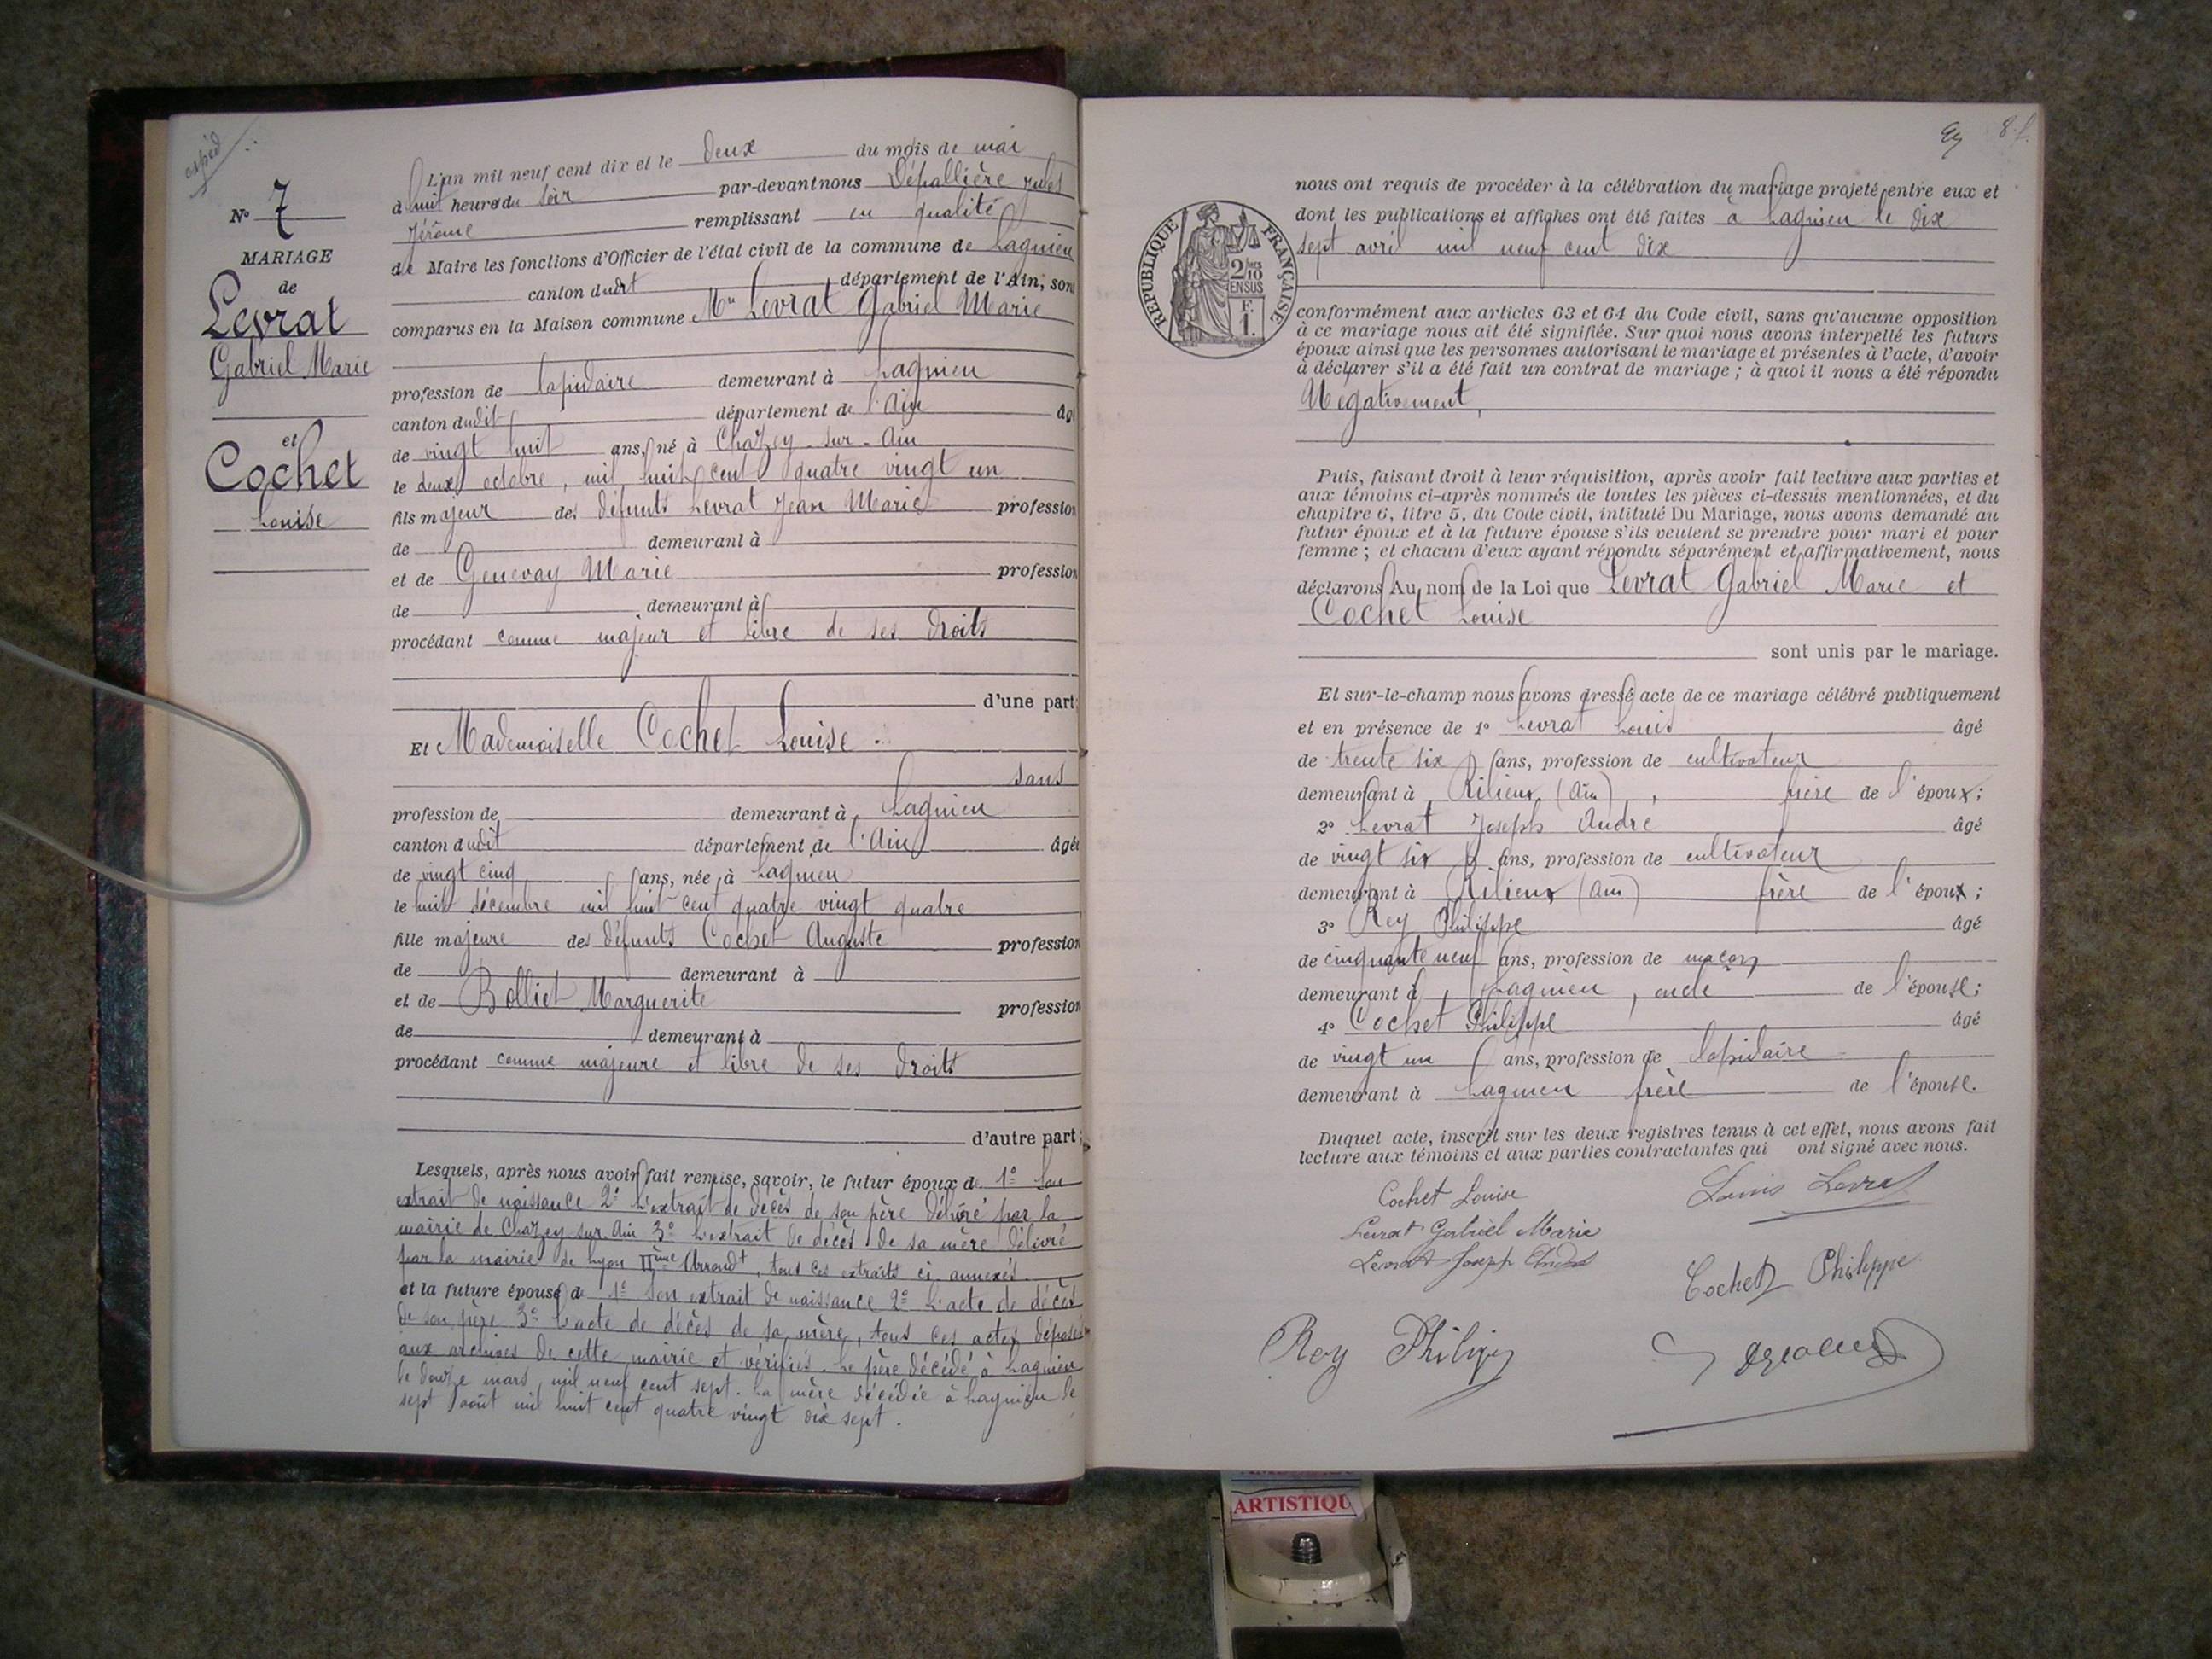 expéd
N° 7
MARIAGE
de
Levrat
Gabriel Marie
et
Cochet
Louise
L'an mil neuf cent dix et le deux du mois de mai
à huit heures du soir par-devant nous Dépallière Jules
Jérôme remplissant en qualité
de Maire les fonctions d'Officier de l'état civil de la commune de Lagnieu
canton dudit département de l'Ain, sont
comparus en la Maison commune Mr Levrat Gabriel Marie
profession de lapidaire demeurant à Lagnieu
canton dudit département de l'Ain âgé
de vingt huit ans, né à Chazey-sur-Ain
le deux octobre, mil huit cent quatre vingt un
fils majeur des défunts Levrat Jean Marie profession
de demeurant à
et de Genevay Marie profession
de demeurant à
procédant comme majeur et libre de ses droits
d'une part;
Et Mademoiselle Cochet Louise
sans
profession de demeurant à Lagnieu
canton dudit département de l'Ain âgée
de vingt cinq ans, née à Lagnieu
le huit décembre mil huit cent quatre vingt quatre
fille majeure des défunts Cochet Auguste profession
de demeurant à
et de Bolliet Marguerite profession
de demeurant à
procédant comme majeure et libre de ses droits
d'autre part;
Lesquels, après nous avoir fait remise, savoir, le futur époux de 1° Son
extrait de naissance 2° L'extrait de décès de son père délivré par la
mairie de Chazey-sur-Ain 3° L'extrait de décès de sa mère délivré
par la mairie de Lyon IIème Arrondt, tous ces extraits ci annexés
et la future épouse de 1° Son extrait de naissance 2° L'acte de décès
de son père 3° L'acte de décès de sa mère, tous ces actes déposés
aux archives de cette mairie et vérifiés. Le père décédé à Lagnieu
le douze mars, mil neuf cent sept. La mère décédée à Lagnieu le
sept août mil huit cent quatre vingt dix sept.
8
RÉPUBLIQUE FRANÇAISE
2/10 EN SUS
F. 1.
nous ont requis de procéder à la célébration du mariage projeté entre eux et
dont les publications et affiches ont été faites à Lagnieu le dix
sept avril mil neuf cent dix
conformément aux articles 63 et 64 du Code civil, sans qu'aucune opposition
à ce mariage nous ait été signifiée. Sur quoi nous avons interpellé les futurs
époux ainsi que les personnes autorisant le mariage et présentes à l'acte, d'avoir
à déclarer s'il a été fait un contrat de mariage ; à quoi il nous a été répondu
Négativement,
Puis, faisant droit à leur réquisition, après avoir fait lecture aux parties et
aux témoins ci-après nommés de toutes les pièces ci-dessus mentionnées, et du
chapitre 6, titre 5, du Code civil, intitulé Du Mariage, nous avons demandé au
futur époux et à la future épouse s'ils veulent se prendre pour mari et pour
femme ; et chacun d'eux ayant répondu séparément et affirmativement, nous
déclarons Au nom de la Loi que Levrat Gabriel Marie et
Cochet Louise
sont unis par le mariage.
Et sur-le-champ nous avons dressé acte de ce mariage célébré publiquement
et en présence de 1° Levrat Louis âgé
de trente six ans, profession de cultivateur
demeurant à Rilieux (Ain), frère de l'époux;
2° Levrat Joseph André âgé
de vingt six ans, profession de cultivateur
demeurant à Rilieux (Ain) frère de l'époux;
3° Rey Philippe âgé
de cinquante neuf ans, profession de maçon
demeurant à Lagnieu, oncle de l'épouse;
4° Cochet Philippe âgé
de vingt un ans, profession de lapidaire
demeurant à Lagnieu frère de l'épouse.
Duquel acte, inscrit sur les deux registres tenus à cet effet, nous avons fait
lecture aux témoins et aux parties contractantes qui ont signé avec nous.
Cochet Louise
Louis Levrat
Levrat Gabriel Marie
Levrat Joseph André
Cochet Philippe
Rey Philipp
ARTISTIQU